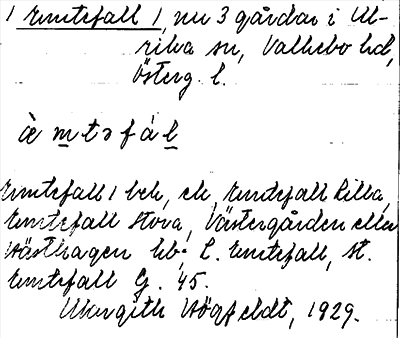 1 Emtefall 1, nu 3 gårdar i Ul-
rika sn, Valkebo hd,
Österg. l.
è m t ə f á l
Emtefall 1 beh, ek, Emtefall Lilla,
Emtefall Stora, Västergården eller
Västhagen kb; L. Emtefall, St.
Emtefall G. 45.
Margith Högfeldt, 1929.